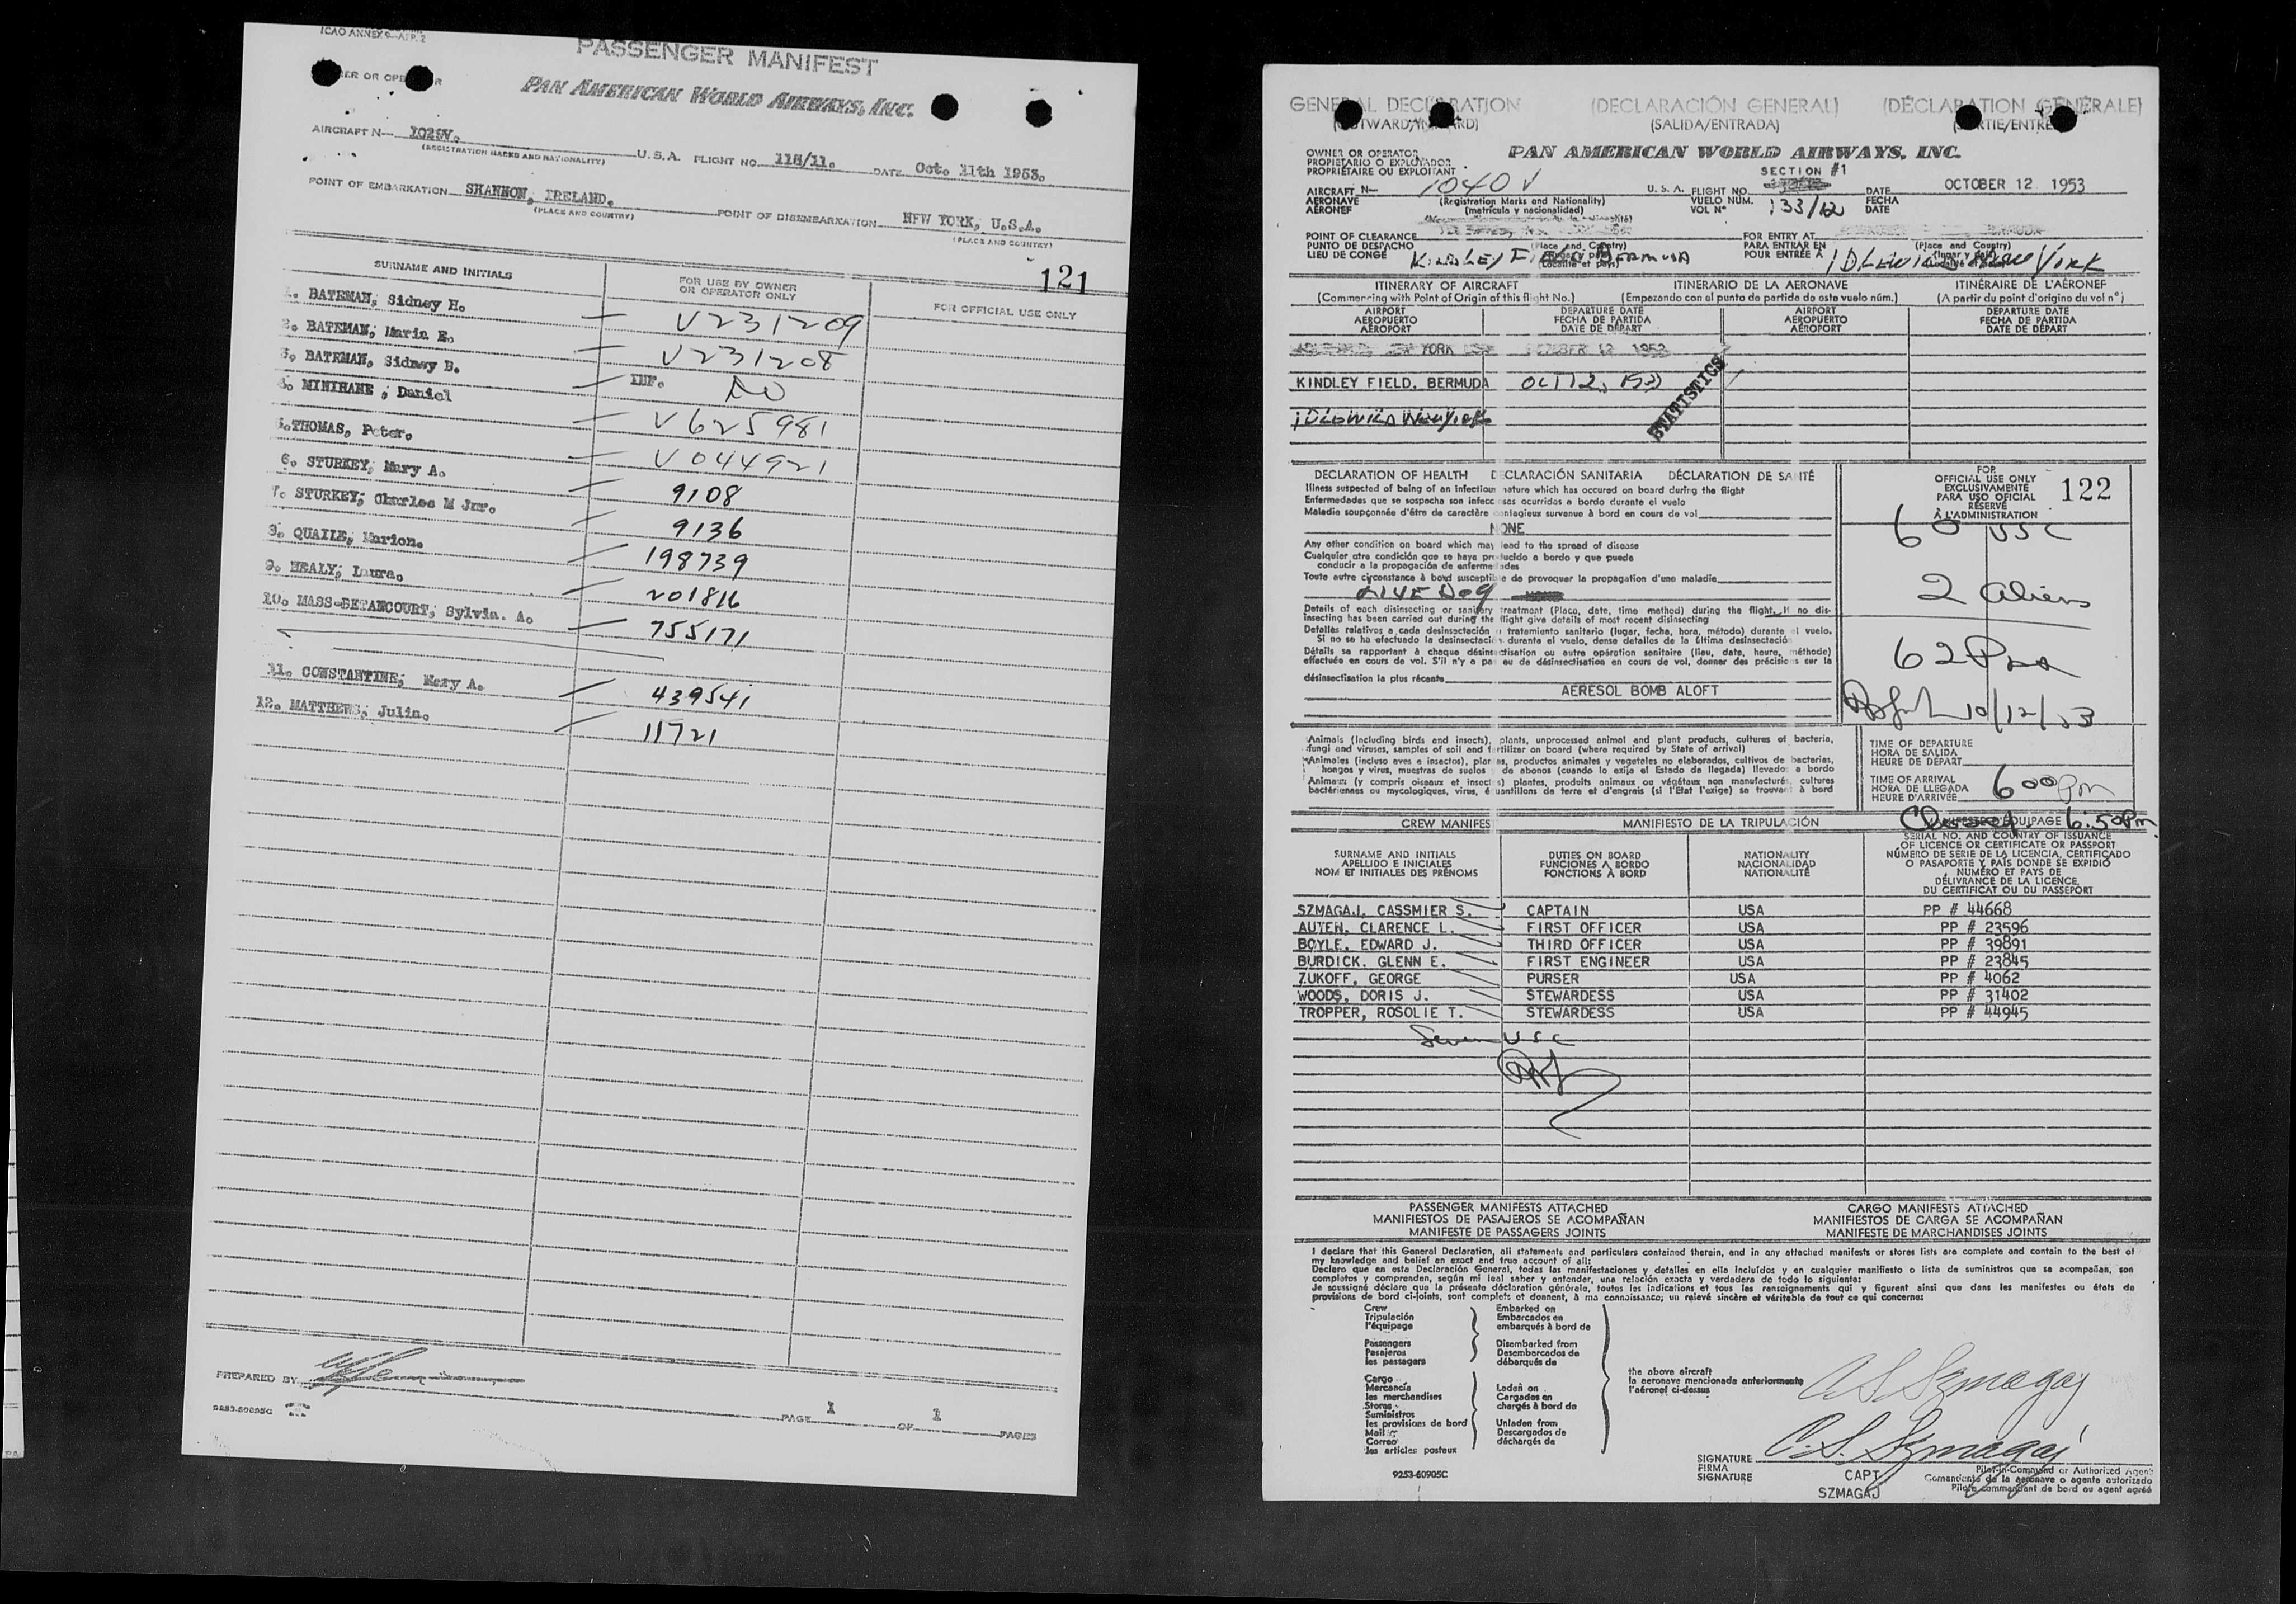 ICAO ANNEX 9—APP. 2
PASSENGER MANIFEST
PAN AMERICAN WORLD AIRWAYS, INC.
AIRCRAFT N— U.S.A. FLIGHT NO. DATE Oct. 11th 1953.
(REGISTRATION MARKS AND NATIONALITY)
POINT OF EMBARKATION SHANNON, IRELAND. POINT OF DISEMBARKATION NEW YORK, U.S.A.
(PLACE AND COUNTRY) (PLACE AND COUNTRY)
121
SURNAME AND INITIALS FOR USE BY OWNER OR OPERATOR ONLY FOR OFFICIAL USE ONLY
1. BATEMAN, Sidney H. — V231209
2. BATEMAN, Marin E. — V231208
3. BATEMAN, Sidney B. — INF.
4. MINIHANE, Daniel — V625981
5. THOMAS, Peter. — V044921
6. STURKEY, Mary A. — 9108
7. STURKEY, Charles M Jnr. — 9136
8. QUAILE, Marion. — 198739
9. HEALY, Laura. — 201816
10. MASS-BETANCOURT, Sylvia. A. — 755171
11. CONSTANTINE, Mary A. — 439541
12. MATTHEWS, Julia. — 11721
PREPARED BY
9253-60895C
PAGE 1 OF 1 PAGES
GENERAL DECLARATION (DECLARACIÓN GENERAL) (DÉCLARATION GÉNÉRALE)
(OUTWARD/INWARD) (SALIDA/ENTRADA) (SORTIE/ENTRÉE)
OWNER OR OPERATOR PAN AMERICAN WORLD AIRWAYS, INC.
PROPIETARIO O EXPLOTADOR
PROPRIÉTAIRE OU EXPLOITANT
SECTION #1
AIRCRAFT N— 1040 V U. S. A. FLIGHT NO. DATE OCTOBER 12 1953
AERONAVE (Registration Marks and Nationality) VUELO NÚM. 133/12 FECHA
AÉRONEF (matrícula y nacionalidad) VOL Nº DATE
POINT OF CLEARANCE FOR ENTRY AT
PUNTO DE DESPACHO (Place and Country) PARA ENTRAR EN (Place and Country)
LIEU DE CONGÉ KINDLEY FIELD BERMUDA POUR ENTRÉE À IDLEWILD NEW YORK
ITINERARY OF AIRCRAFT ITINERARIO DE LA AERONAVE ITINÉRAIRE DE L'AÉRONEF
(Commencing with Point of Origin of this flight No.) (Empezando con el punto de partida de este vuelo núm.) (A partir du point d'origine du vol nº)
AIRPORT DEPARTURE DATE AIRPORT DEPARTURE DATE
AEROPUERTO FECHA DE PARTIDA AEROPUERTO FECHA DE PARTIDA
AÉROPORT DATE DE DÉPART AÉROPORT DATE DE DÉPART
KINDLEY FIELD, BERMUDA OCT 12, 1953
IDLEWILD NEW YORK
STATISTICS
DECLARATION OF HEALTH DECLARACIÓN SANITARIA DÉCLARATION DE SANTÉ
Illness suspected of being of an infectious nature which has occured on board during the flight
Enfermedades que se sospecha son infecciosas ocurridas a bordo durante el vuelo
Maladie soupçonnée d'être de caractère contagieux survenue à bord en cours de vol
NONE
Any other condition on board which may lead to the spread of disease
Cualquier otra condición que se haya producido a bordo y que puede
conducir a la propagación de enfermedades
Toute autre circonstance à bord susceptible de provoquer la propagation d'une maladie
LIVE DOG
Details of each disinsecting or sanitary treatment (Place, date, time method) during the flight. If no dis-
insecting has been carried out during the flight give details of most recent disinsecting
Detalles relativos a cada desinsectación o tratamiento sanitario (lugar, fecha, hora, método) durante el vuelo.
Si no se ha efectuado la desinsectación durante el vuelo, dense detalles de la última desinsectación
Détails se rapportant à chaque désinsectisation ou autre opération sanitaire (lieu, date, heure, méthode)
effectuée en cours de vol. S'il n'y a pas eu de désinsectisation en cours de vol, donner des précisions sur la
désinsectisation la plus récente
AERESOL BOMB ALOFT
FOR
OFFICIAL USE ONLY
EXCLUSIVAMENTE
PARA USO OFICIAL
RÉSERVÉ
À L'ADMINISTRATION
122
60 USC
2 aliens
62
10/12/53
Animals (including birds and insects), plants, unprocessed animal and plant products, cultures of bacteria,
fungi and viruses, samples of soil and fertilizer on board (where required by State of arrival)
Animales (incluso aves e insectos), plantas, productos animales y vegetales no elaborados, cultivos de bacterias,
hongos y virus, muestras de suelos y de abonos (cuando lo exija el Estado de llegada) llevados a bordo
Animaux (y compris oiseaux et insectes) plantes, produits animaux ou végétaux non manufacturés, cultures
bactériennes ou mycologiques, virus, échantillons de terre et d'engrais (si l'Etat l'exige) se trouvant à bord
TIME OF DEPARTURE
HORA DE SALIDA
HEURE DE DÉPART
TIME OF ARRIVAL
HORA DE LLEGADA
HEURE D'ARRIVÉE 6 00 Pm
6.50 Pm
CREW MANIFEST MANIFIESTO DE LA TRIPULACIÓN MANIFESTE D'ÉQUIPAGE
SURNAME AND INITIALS DUTIES ON BOARD NATIONALITY SERIAL NO. AND COUNTRY OF ISSUANCE
APELLIDO E INICIALES FUNCIONES A BORDO NACIONALIDAD OF LICENCE OR CERTIFICATE OR PASSPORT
NOM ET INITIALES DES PRÉNOMS FONCTIONS À BORD NATIONALITÉ NÚMERO DE SERIE DE LA LICENCIA, CERTIFICADO
O PASAPORTE Y PAÍS DONDE SE EXPIDIÓ
NUMÉRO ET PAYS DE
DÉLIVRANCE DE LA LICENCE,
DU CERTIFICAT OU DU PASSEPORT
SZMAGAJ, CASSMIER S. CAPTAIN USA PP # 44668
AUTEN, CLARENCE L. FIRST OFFICER USA PP # 23596
BOYLE, EDWARD J. THIRD OFFICER USA PP # 39891
BURDICK, GLENN E. FIRST ENGINEER USA PP # 23845
ZUKOFF, GEORGE PURSER USA PP # 4062
WOODS, DORIS J. STEWARDESS USA PP # 31402
TROPPER, ROSOLIE T. STEWARDESS USA PP # 44945
Seven USC
PASSENGER MANIFESTS ATTACHED CARGO MANIFESTS ATTACHED
MANIFIESTOS DE PASAJEROS SE ACOMPAÑAN MANIFIESTOS DE CARGA SE ACOMPAÑAN
MANIFESTE DE PASSAGERS JOINTS MANIFESTE DE MARCHANDISES JOINTS
I declare that this General Declaration, all statements and particulars contained therein, and in any attached manifests or stores lists are complete and contain to the best of
my knowledge and belief an exact and true account of all:
Declaro que en esta Declaración General, todas las manifestaciones y detalles en ella incluídos y en cualquier manifiesto o lista de suministros que se acompañan, son
completos y comprenden, según mi leal saber y entender, una relación exacta y verdadera de todo lo siguiente:
Je soussigné déclare que la présente déclaration générale, toutes les indications et tous les renseignements qui y figurent ainsi que dans les manifestes ou états de
provisions de bord ci-joints, sont complets et donnent, à ma connaissance, un relevé sincère et véritable de tout ce qui concerne:
Crew Embarked on
Tripulación Embarcados en
l'équipage embarqués à bord de
Passengers Disembarked from
Pasajeros Desembarcados de
les passagers débarqués de
the above aircraft
la aeronave mencionada anteriormente
l'aéronef ci-dessus
Cargo
Mercancía Laden on
les merchandises Cargados en
Stores chargés à bord de
Suministros
les provisions de bord Unladen from
Mail Descargados de
Correo déchargés de
les articles postaux
C S Szmagaj
SIGNATURE C. S. Szmagaj
FIRMA
SIGNATURE
CAPT
SZMAGAJ
Pilot-in-Command or Authorized Agent
Comandante de la aeronave o agente autorizado
Pilote commandant de bord ou agent agréé
9253-60905C